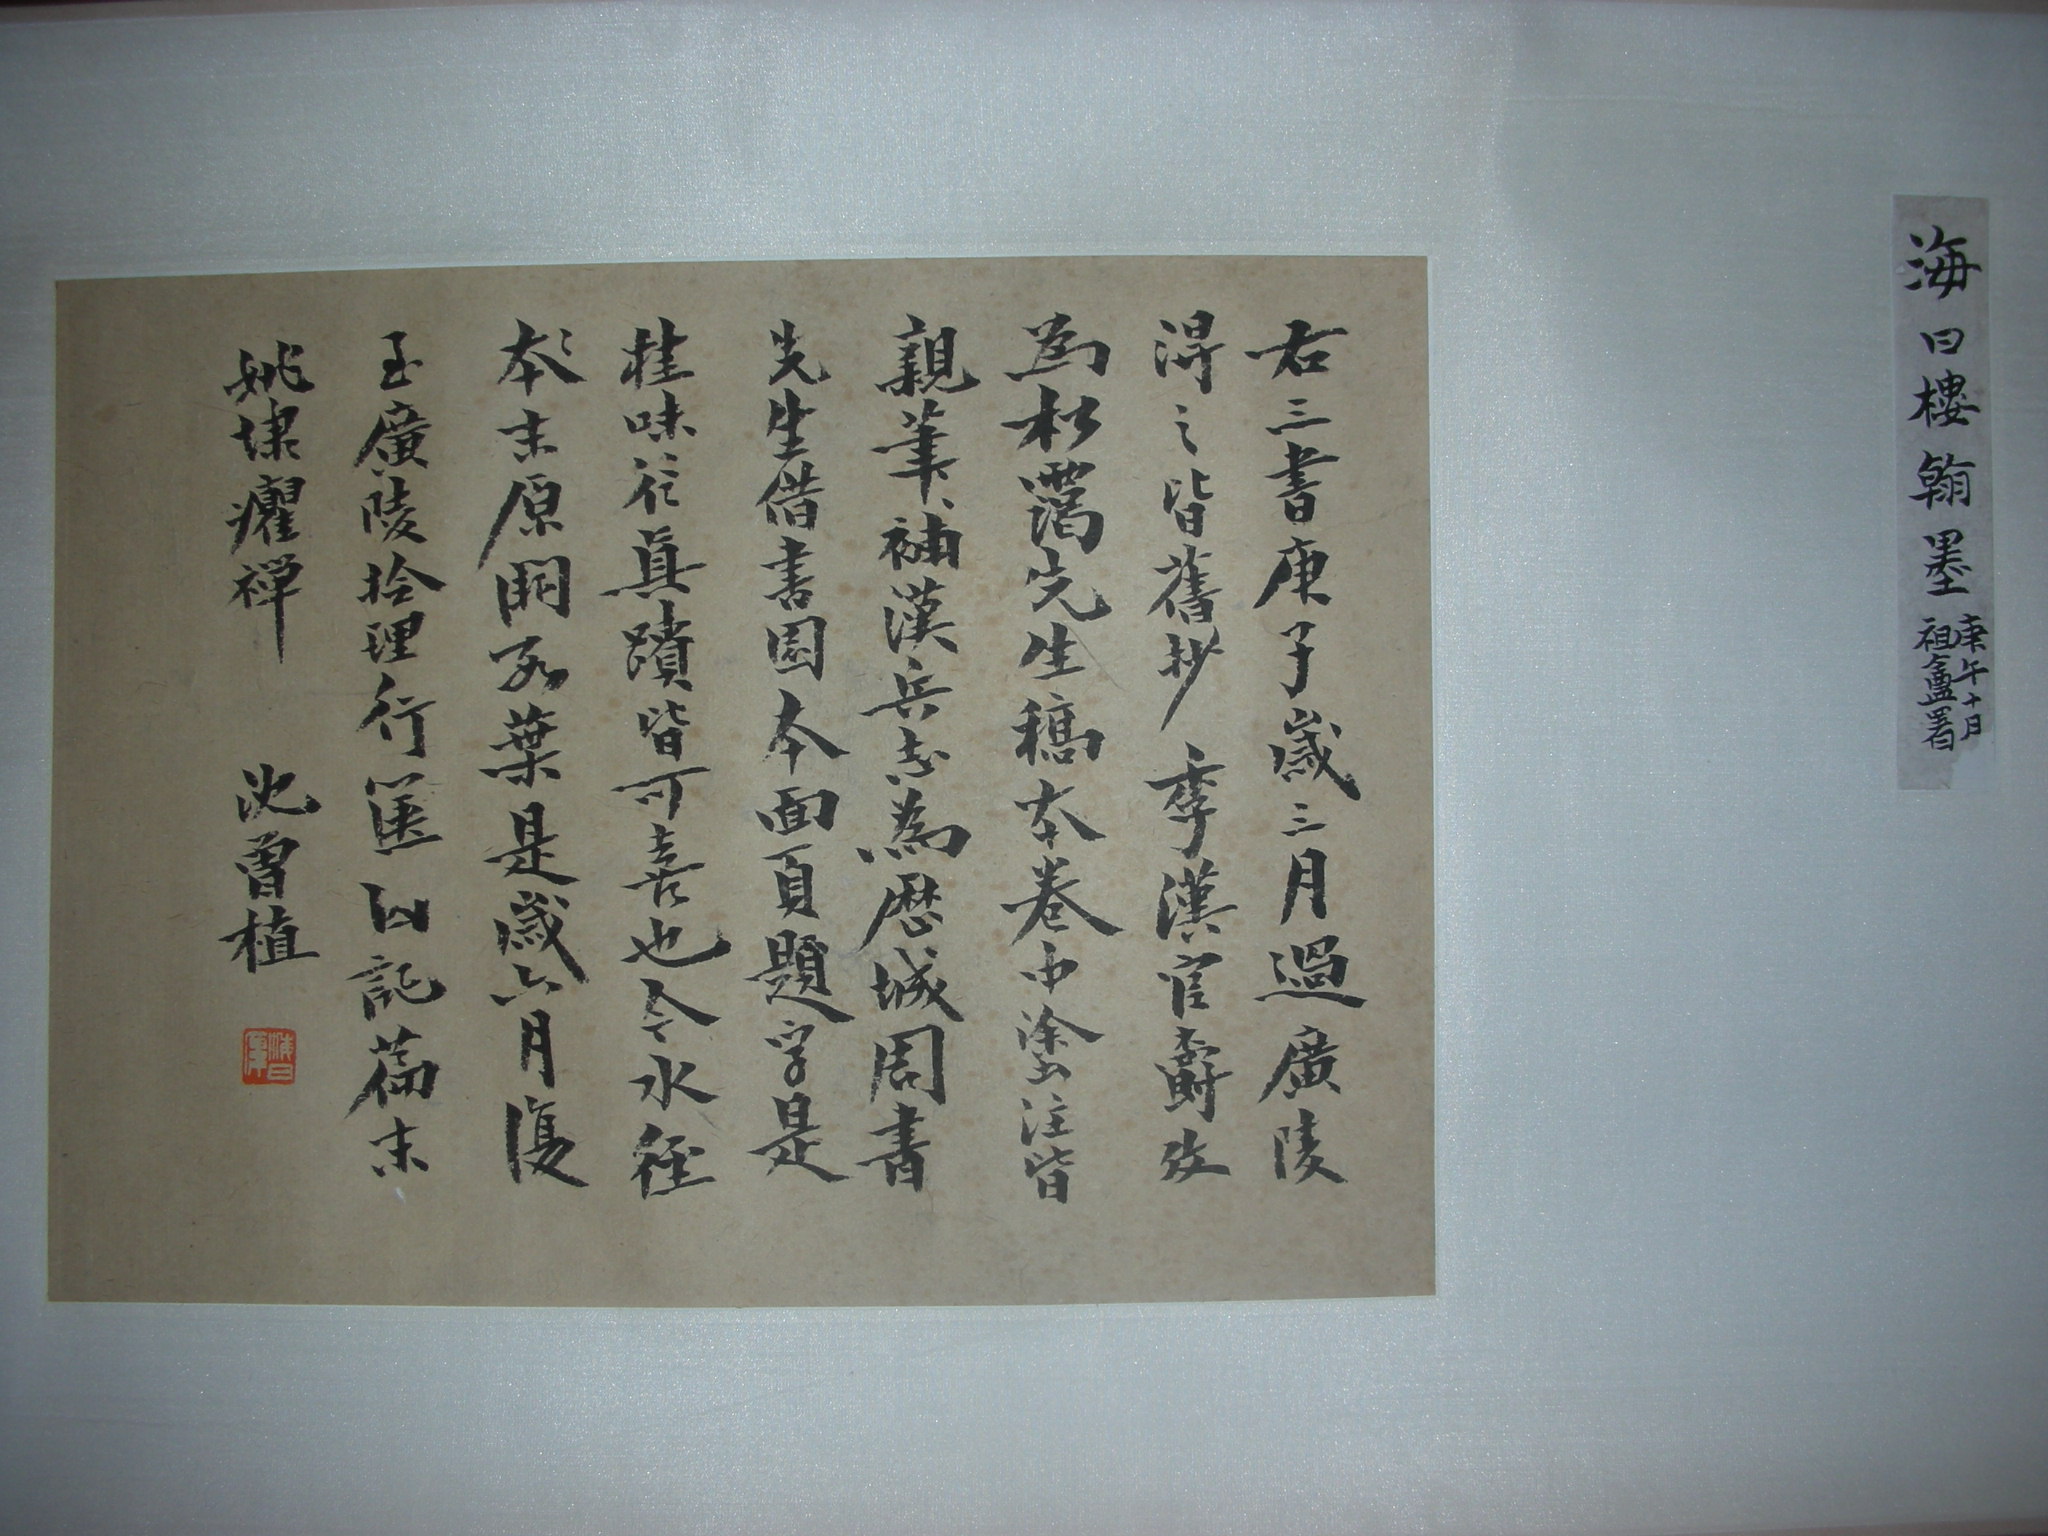 海日樓翰墨
庚午十月
祖盫署
右三書庚子歲三月過廣陵
得之皆舊抄季漢官爵攷
為松靄先生稿本卷中塗注皆
親筆補漢兵志為歷城周書
先生借書園本面頁題字是
桂味谷真蹟皆可喜也今水經
本末原闕兩葉是歲六月復
至廣陵拾理行篋因記篇末
姚埭癯禪 沈曾植
海日